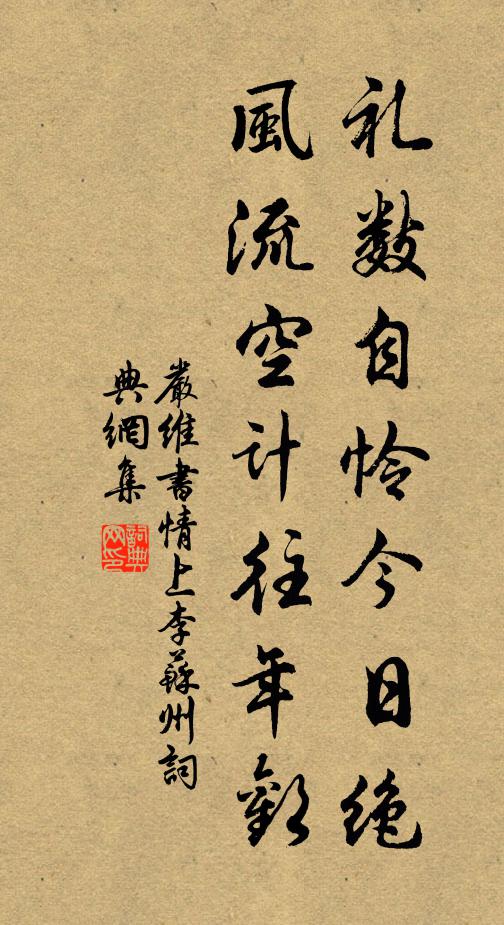 礼数自怜今日绝
風流空计往年歡
嚴維書情上李蘇州詞
典網集
詞典
网印